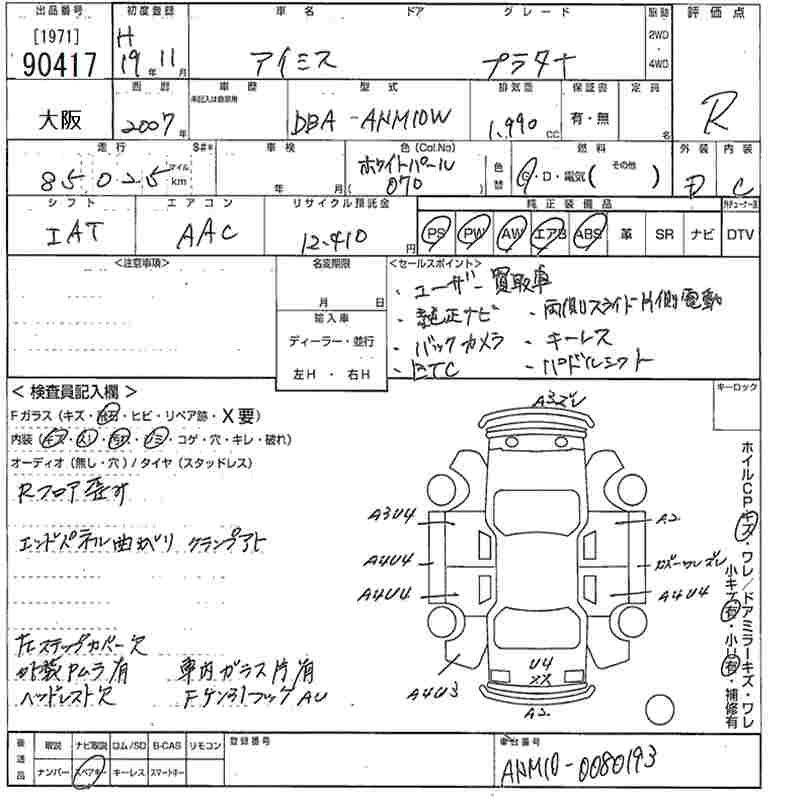 出品番号 初度登録 車名 ドア グレード 駆動 評価点
[1971] H 2WD
90417 19年 11月 アイシス プラタナ ・ R
4WD
西暦 車歴 型式 排気量 保証書 定員
大阪 2007年 未記入は自家用 DBA-ANM10W 1,990 CC 有・無 名
走行 S#* 車検 色 (Col.No) 燃料 外装 内装
85,025 マイル km 年 月 ホワイトパール 070 色替 G・D・電気( その他 ) D C
シフト エアコン リサイクル預託金 純正装備品
IAT AAC 12,410円 PS PW AW エアB ABS 革 SR ナビ DTV
<注意事項> 名変期限 <セールスポイント>
月 日 ・ユーザー買取車
輸入車 ・純正ナビ ・両側スライド片側電動
ディーラー・並行 ・バックカメラ ・キーレス
左H ・ 右H ・ETC ・パドルシフト
< 検査員記入欄 > キーロック
Fガラス (キズ・飛石・ヒビ・リペア跡・X要)
内装 (キズ・スリ・汚れ・シミ・コゲ・穴・キレ・破れ)
オーディオ (無し・穴) / タイヤ (スタッドレス)
Rフロア歪み
エンドパネル曲がり クランプアト
左ステップカバー欠
外装Pムラ有 車内ガラス片有
ヘッドレスト欠 Fケン引フックAU
A3ズレ
A3U4
A2
A4U4
ガーワレズレ
A4U4
A4U4
A4U3
U4
XX
A2
ホイルCPキズ・ワレ/ドアミラーキズ・ワレ
小キズ有・小U有・補修有
後送品 取説 ナビ取説 ロム/SD B-CAS リモコン 登録番号 車台番号
ナンバー スペアキー キーレス スマートキー ANM10-0080193